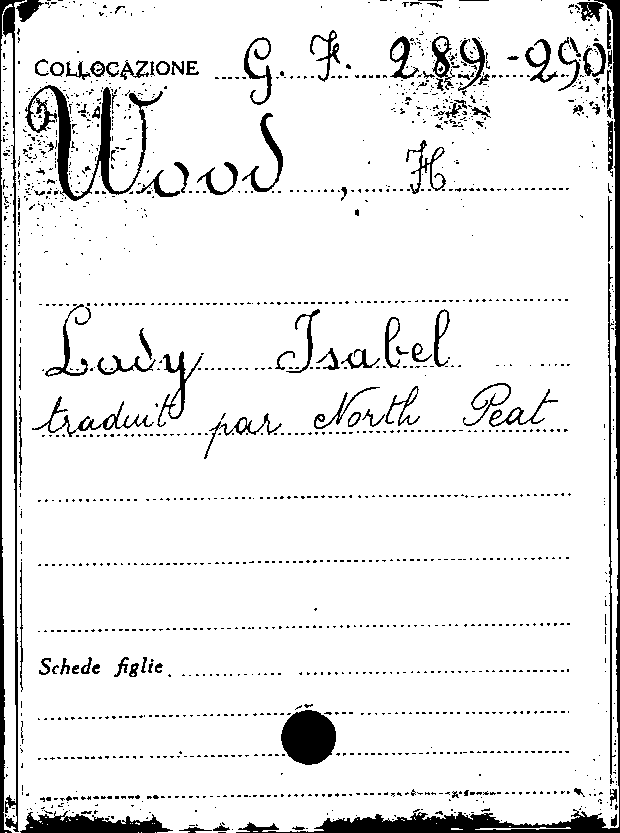 COLLOCAZIONE G. F. 289-290
Wood, H
Lady Isabel
traduit par North Peat
Schede figlie